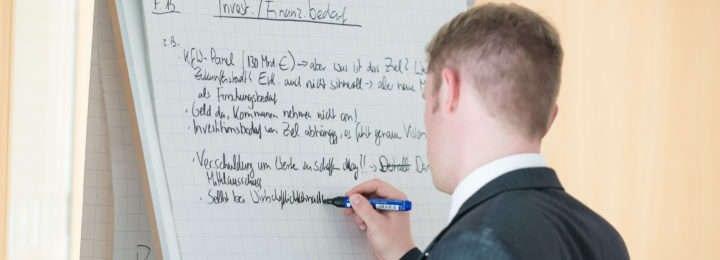 F. 15
Invest. / Finanz. bedarf
z.B.
• KfW-Panel (130 Mrd. €) → aber was ist das Ziel?
Zukunftsstadt? Evt. auch nicht sinnvoll → aber neue
als Forschungsbedarf
• Geld da, Kommunen nehmen nicht an!
• Investitionsbedarf von Ziel abhängig, es fehlt genaue Vision
• Verschuldung um Werte zu schaffen okay!! →
Mittelausschuss
• Selbst bei